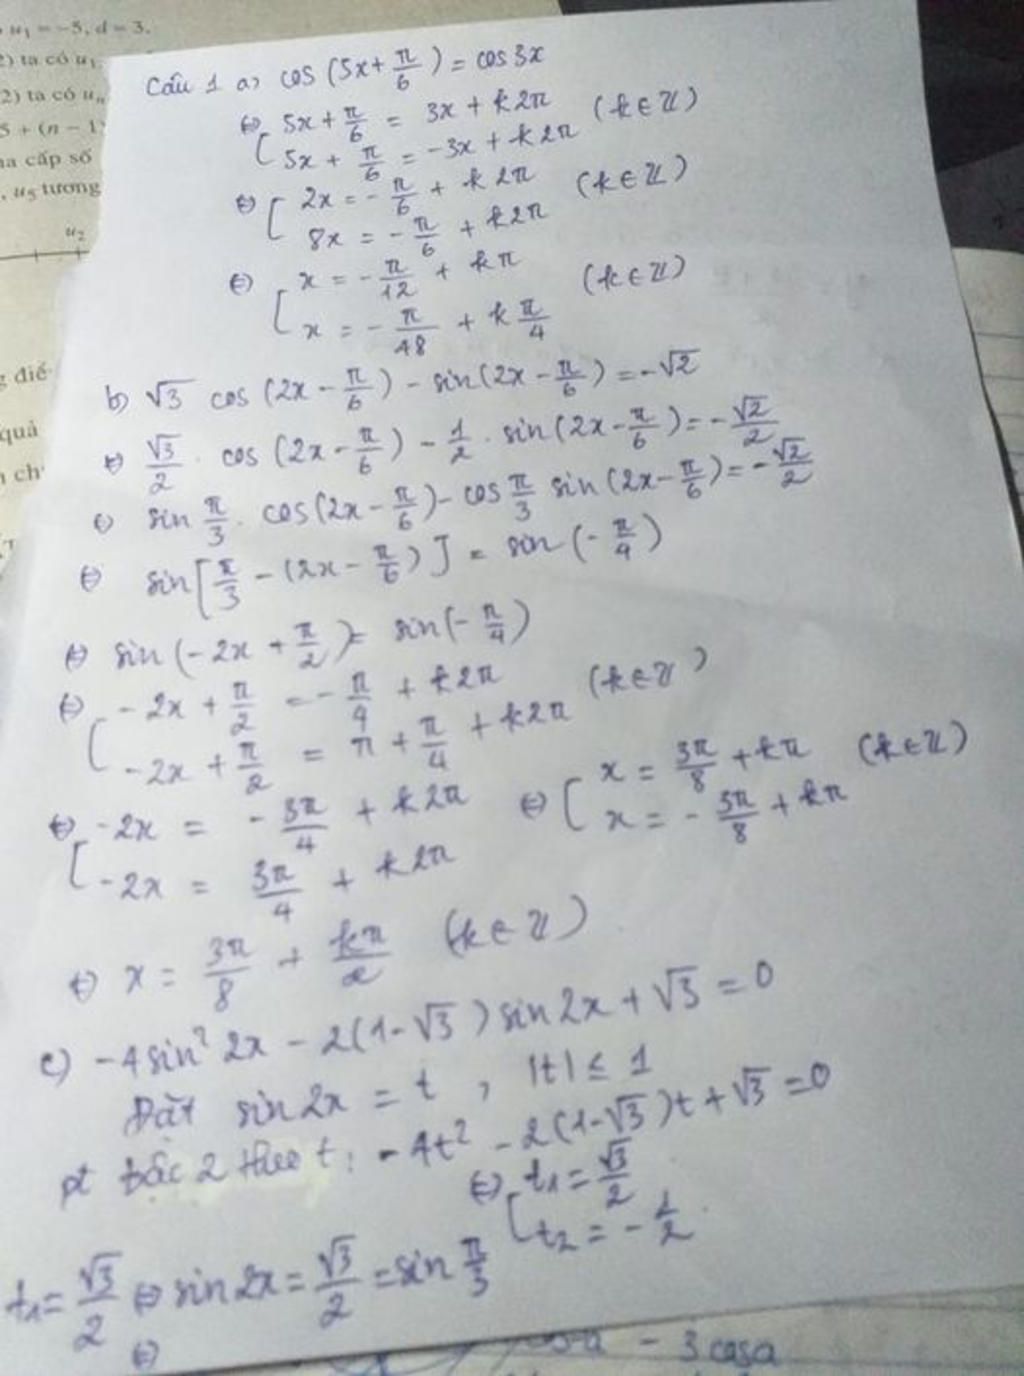 u₁ = -5, d = 3.
2) ta có u₁
2) ta có uₙ
5 + (n - 1)
cấp số
, u₅ tương
u₂
điể
quả
ch
Câu 1 a) cos (5x + π/6) = cos 3x
⇔ [ 5x + π/6 = 3x + k2π (k ∈ Z)
5x + π/6 = -3x + k2π
⇔ [ 2x = -π/6 + k2π (k ∈ Z)
8x = -π/6 + k2π
⇔ [ x = -π/12 + kπ (k ∈ Z)
x = -π/48 + k π/4
b) √3 cos (2x - π/6) - sin (2x - π/6) = -√2
⇔ √3/2 . cos (2x - π/6) - 1/2 . sin (2x - π/6) = -√2/2
⇔ sin π/3 . cos (2x - π/6) - cos π/3 sin (2x - π/6) = -√2/2
⇔ sin [π/3 - (2x - π/6)] = sin (-π/4)
⇔ sin (-2x + π/2) = sin (-π/4)
⇔ [ -2x + π/2 = -π/4 + k2π (k ∈ Z)
-2x + π/2 = π + π/4 + k2π
⇔ [ -2x = -3π/4 + k2π ⇔ [ x = 3π/8 + kπ (k ∈ Z)
-2x = 3π/4 + k2π x = -3π/8 + kπ
⇔ x = 3π/8 + kπ/2 (k ∈ Z)
c) -4sin² 2x - 2(1-√3) sin 2x + √3 = 0
Đặt sin 2x = t , |t| ≤ 1
pt bậc 2 theo t: -4t² - 2(1-√3)t + √3 = 0
⇔ [ t₁ = √3/2
t₂ = -1/2 .
t₁ = √3/2 ⇔ sin 2x = √3/2 = sin π/3
⇔
- 3 cosa